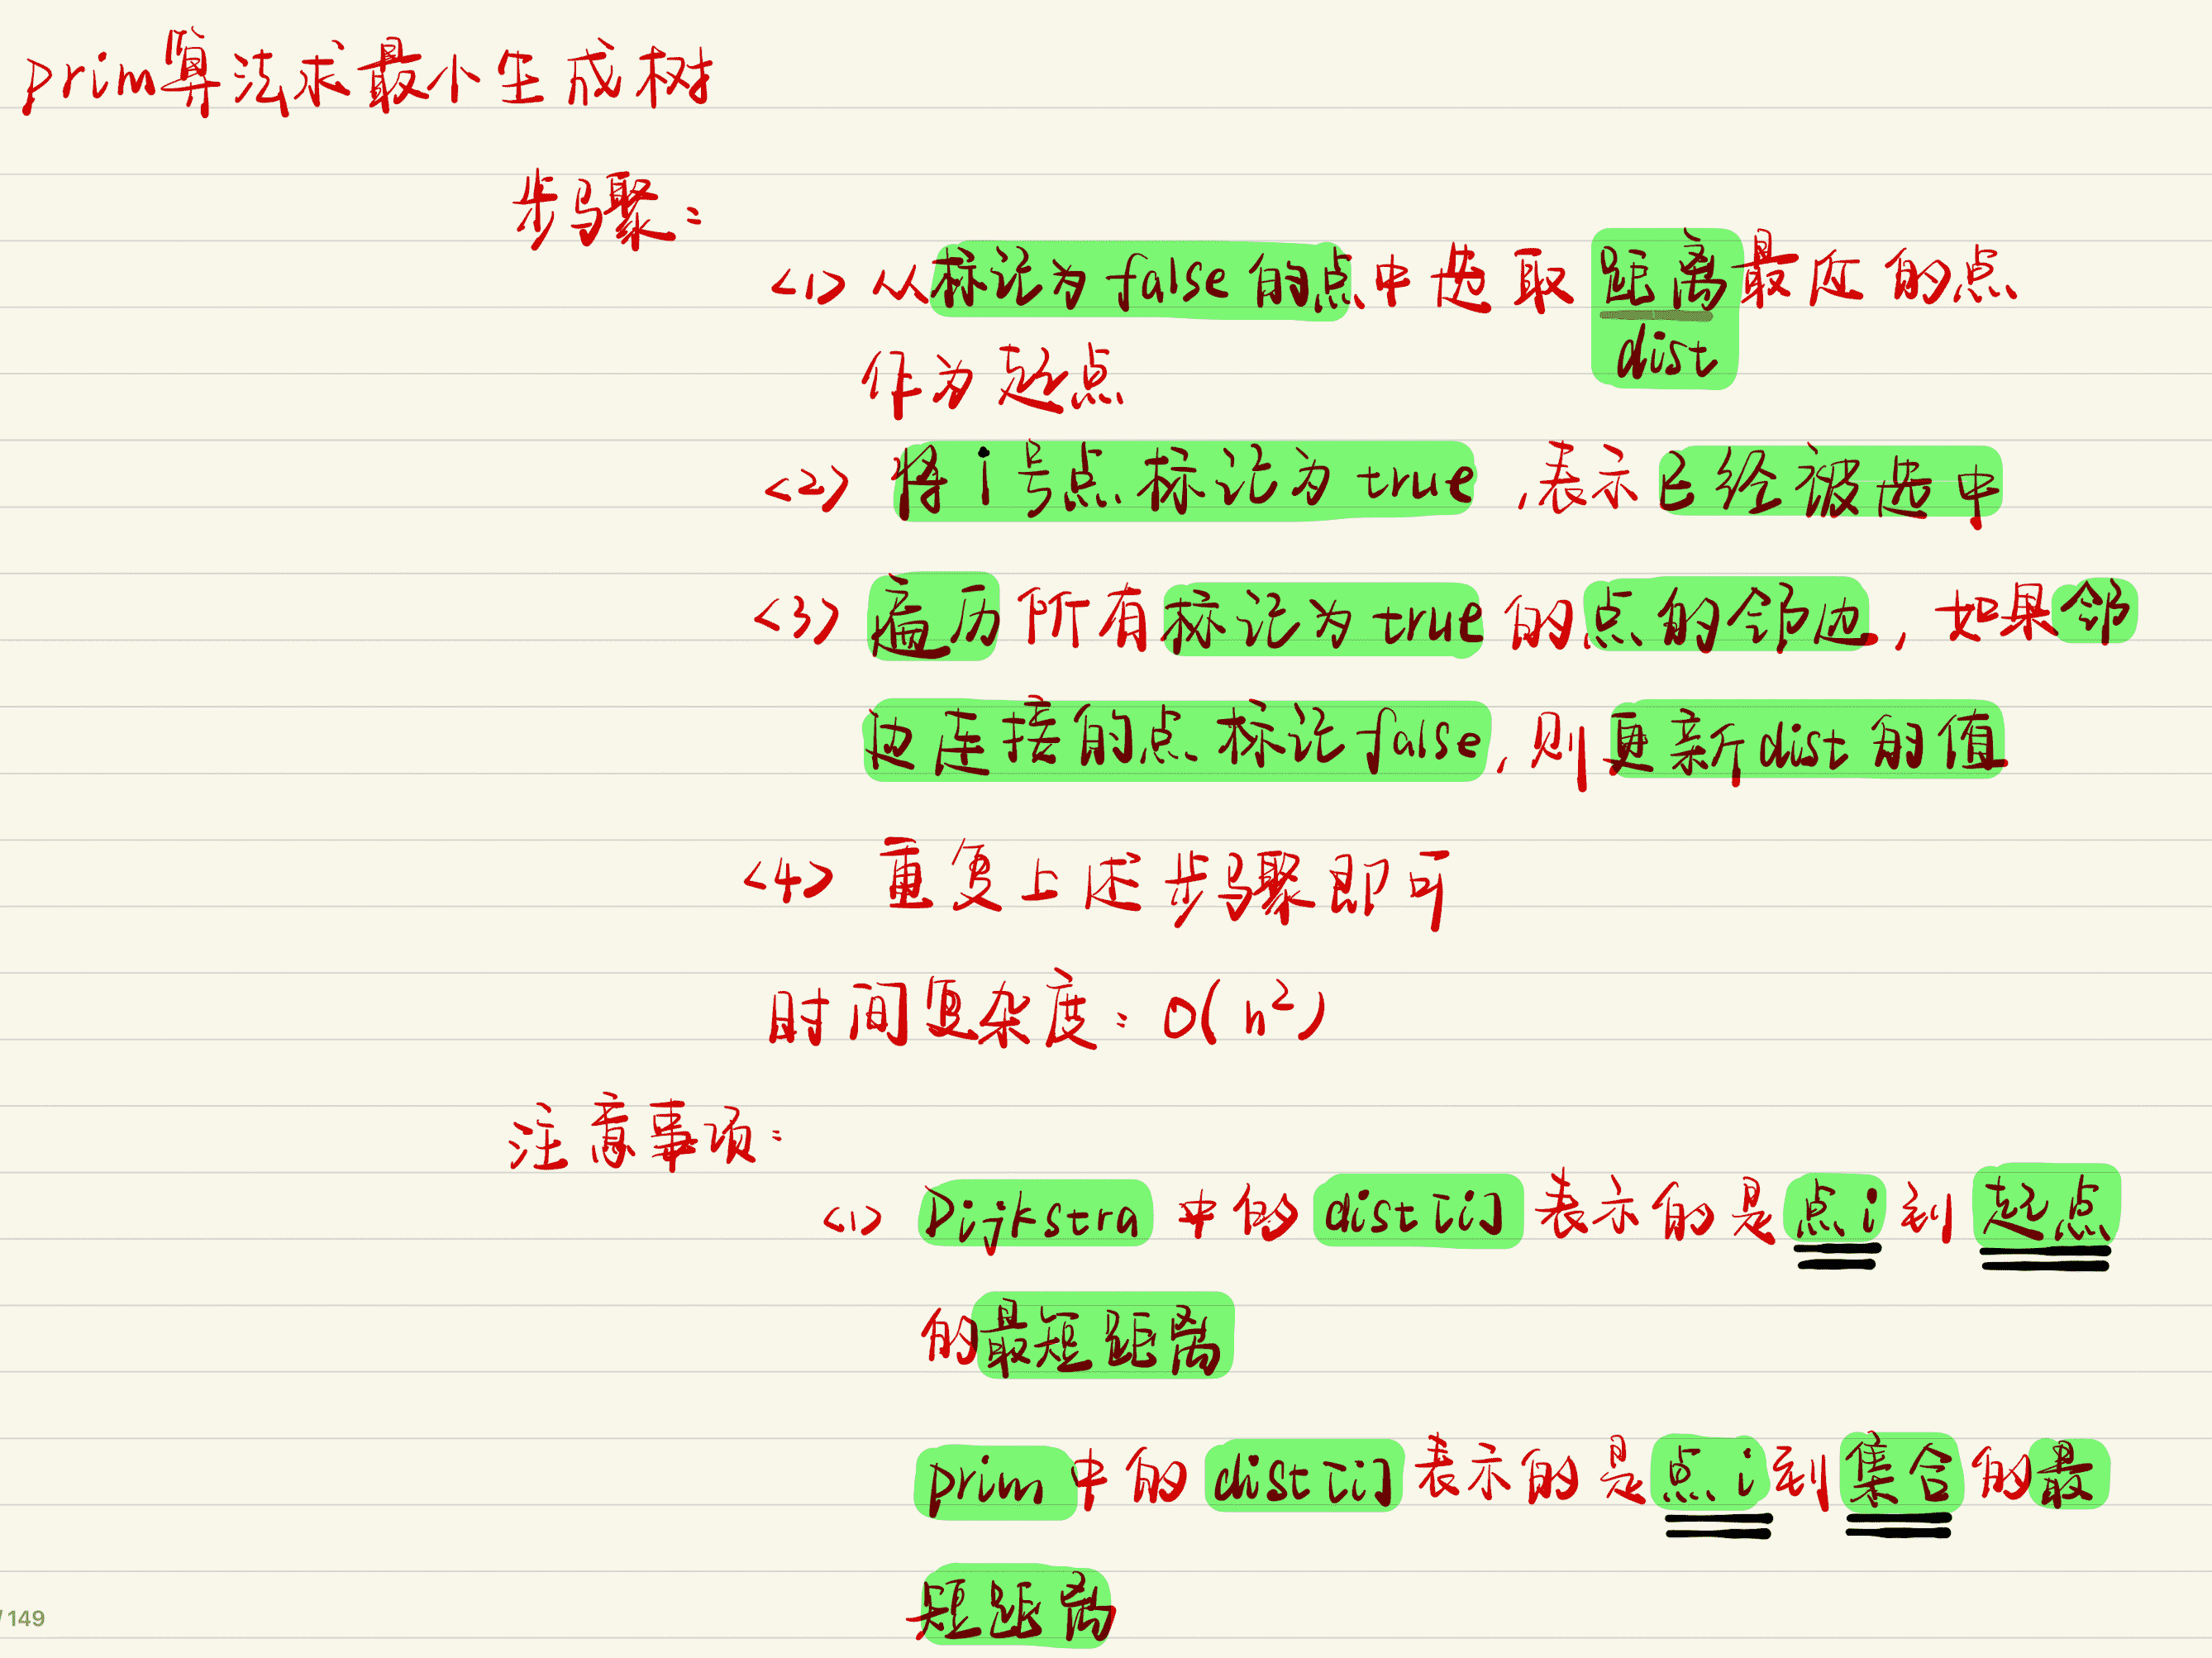 prim算法求最小生成树
步骤:
<1> 从标记为false的点中选取距离最近的点
dist
作为起点
<2> 将i号点标记为true,表示已经被选中
<3> 遍历所有标记为true的点的邻边,如果邻
边连接的点标记false,则更新dist的值
<4> 重复上述步骤即可
时间复杂度:O(n²)
注意事项:
<1> Dijkstra中的dist[i]表示的是点i到起点
的最短距离
prim中的dist[i]表示的是点i到集合的最
短距离
/149